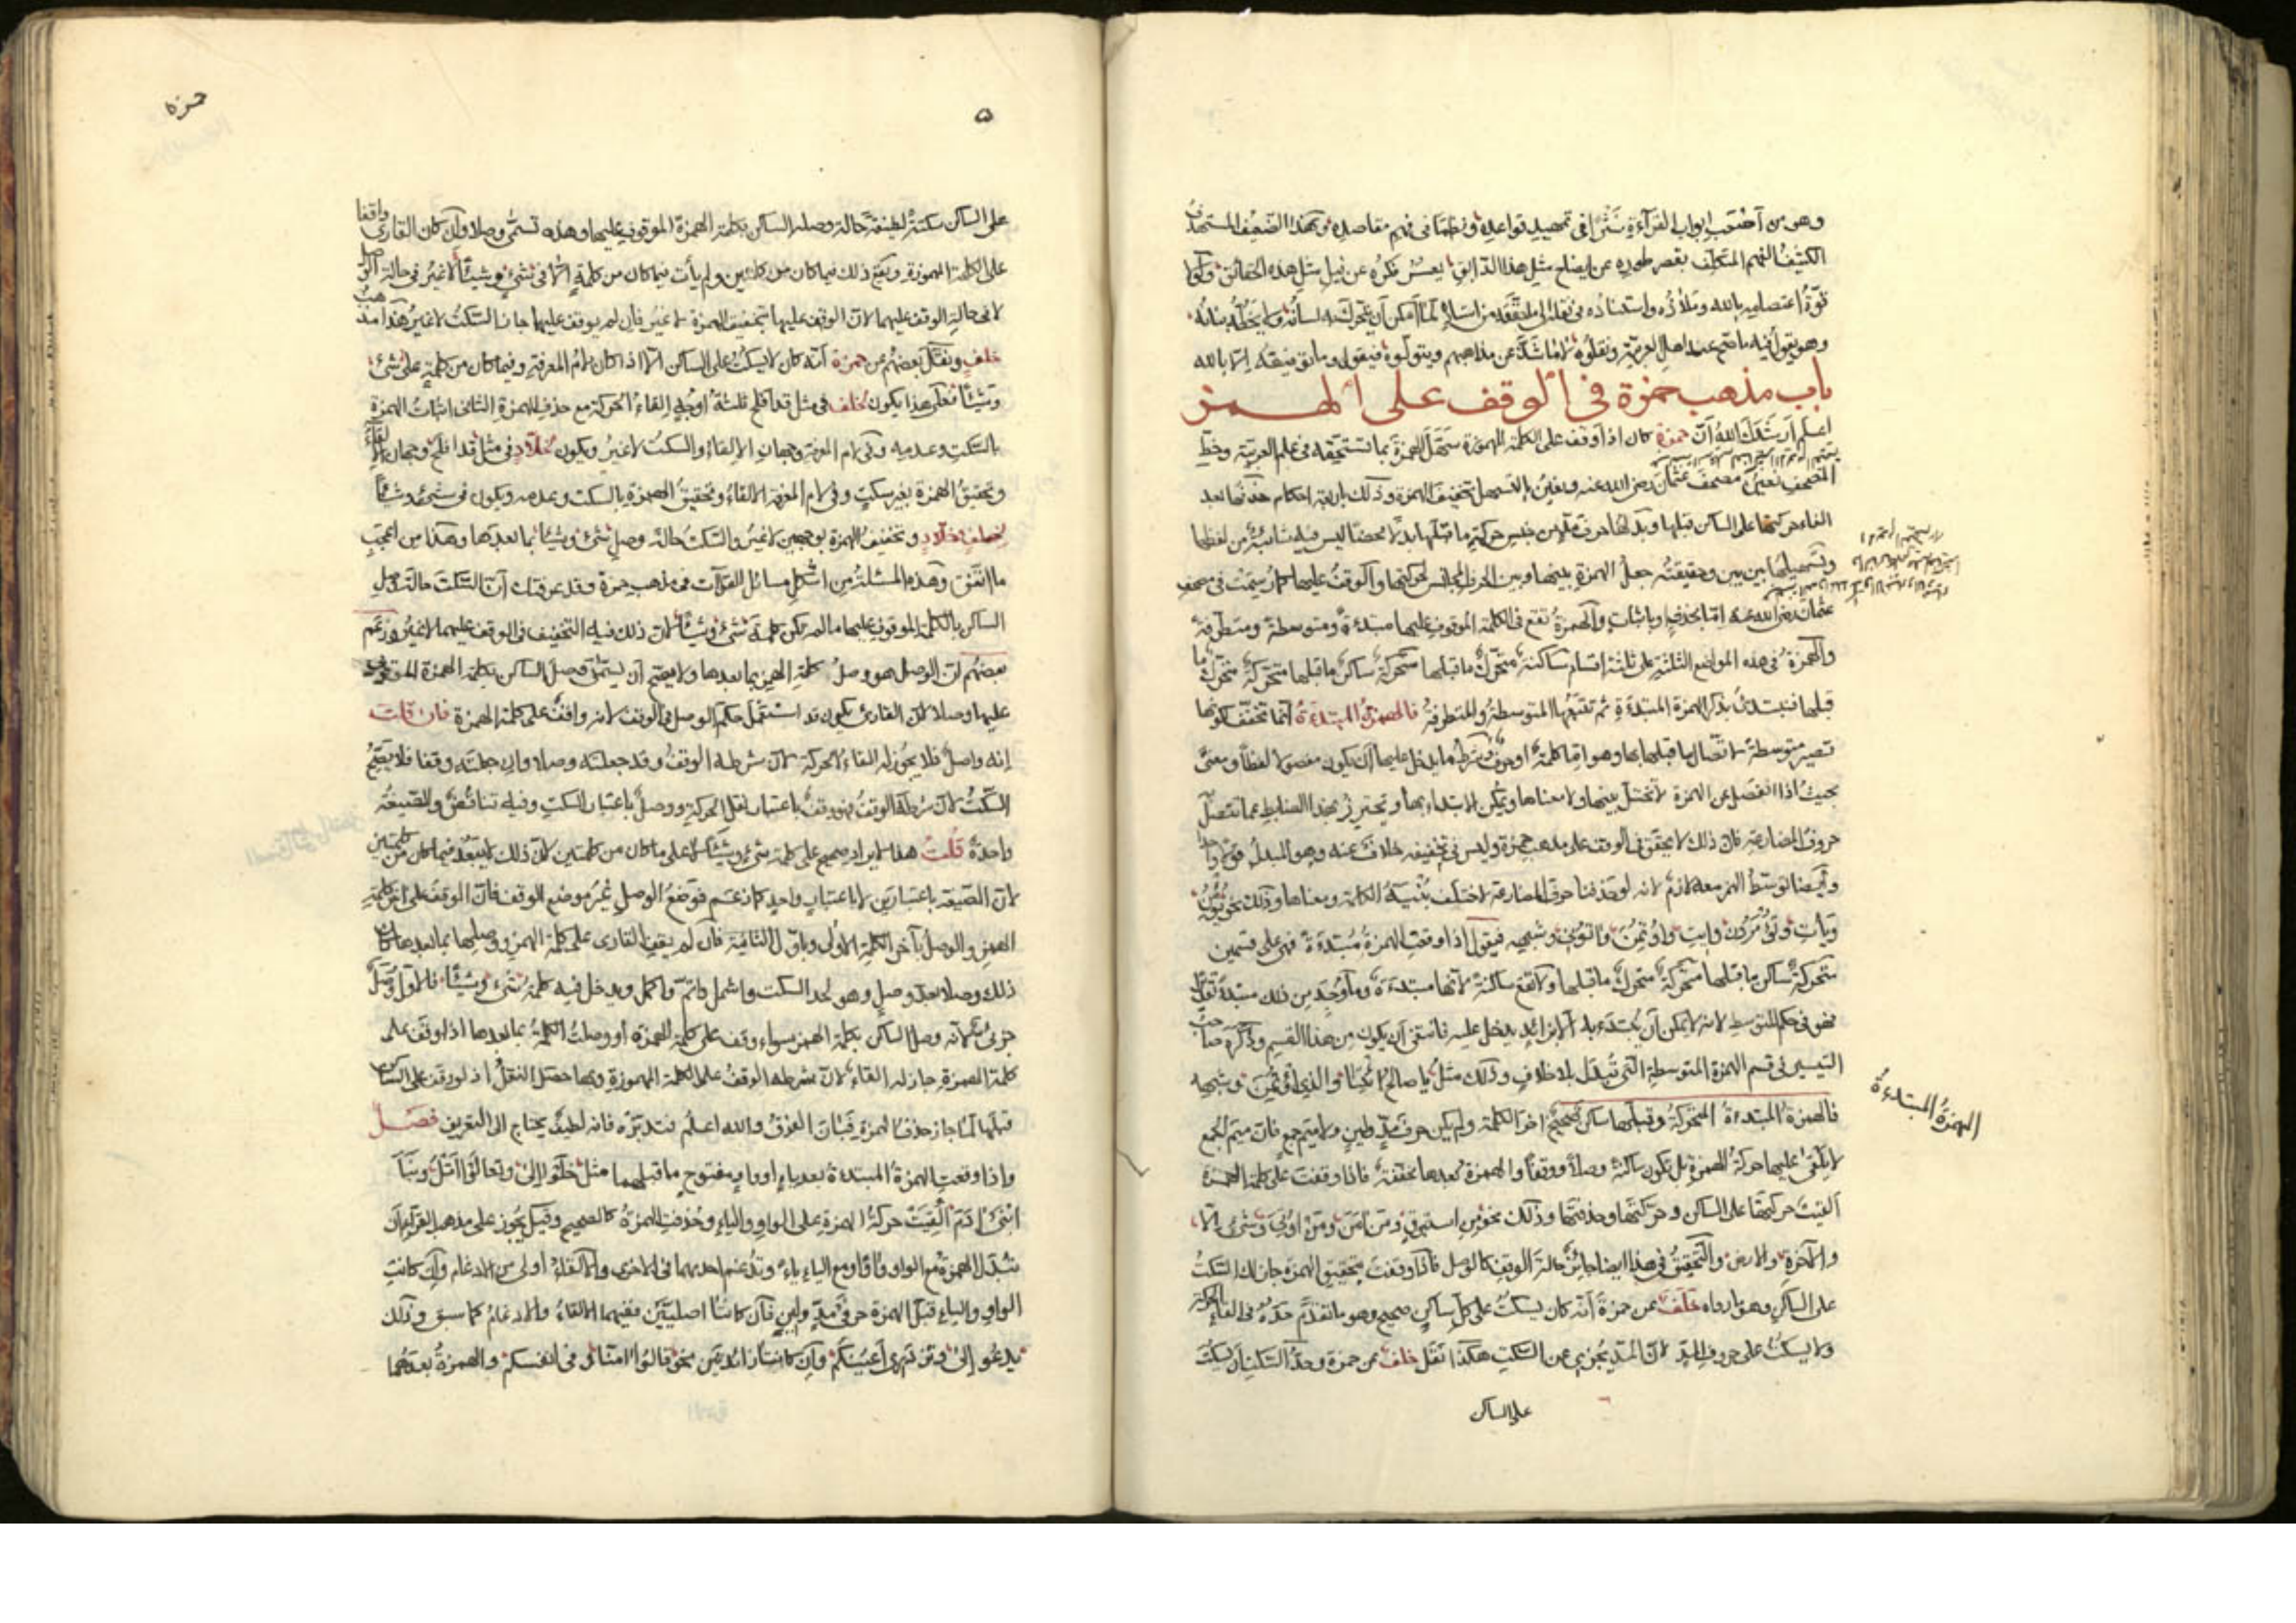 وهو من أصعب ابواب القرآءة نثرا في تمهيد قواعده ونظما في فهم مقاصده
الكثيف الفهم المتكلف بقصر طوره عن ايضاح مثل هذا الدقايق يعسر فكره عن نيل مثل هذه الحقائق
قوة اعتصامه بالله
وهو يقول فيه ما صح عند اهل العربية ونقلوه لا ما شذ عن مذاهبهم فيقول وما توفيقه الا بالله
باب مذهب حمزة في الوقف على الهمز
اعلم ارشدك الله أن حمزة كان اذا وقف على الكلمة المهموزة سهل الهمزة بما تستحقه في علم العربية وخط
المصحف نعني مصحف عثمان رضي الله عنه ونعني بالتسهيل تخفيف الهمزة وذلك باربعة احكام حذفها بعد
القاء حركتها على الساكن قبلها وبدلها حرف مد من جنس حركة ما قبلها بدلا محضا ليس فيه شائبة من لفظها
وتسهيلها بين بين وحقيقته جعل الهمزة بينها وبين الحرف المجانس لحركتها والوقف عليها كما رسمت في مصحف
عثمان رضي الله عنه اما بحذف او باثبات والهمزة تقع في الكلمة الموقوف عليها مبتدءة ومتوسطة ومتطرفة
والهمزة في هذه المواضع الثلثة على ثلثة اقسام ساكنة متحرك ما قبلها متحركة ساكن ما قبلها متحركة متحرك ما
قبلها فنبتدئ بذكر الهمزة المبتدءة ثم نتبعها المتوسطة والمتطرفة فالهمزة المبتدءة انما تخفف لكونها
تصير متوسطة لاتصالها بما قبلها وهو اما كلمة او حرف وشرط ما يدخل عليها ان يكون مفصولا لفظا ومعنى
بحيث اذا انفصل عن الهمزة لا تختل بنيتها ولا معناها ويمكن الابتداء بها ونحترز بهذا الضابط عما تتصل
حروف المضارعة فان ذلك لا يحقق في الوقف على مذهب حمزة وليس في تخفيفه خلاف عنه وهو المبدل
وايضا توسط الهمز معه لازم لانه لو حذفنا حرف المضارعة لاختلف بنية الكلمة ومعناها وذلك نحو يؤمن
وشبهه فيقول اذا وقعت الهمزة مبتدءة فهي على قسمين
متحركة ساكن ما قبلها متحركة متحرك ما قبلها ولا تقع ساكنة لانها مبتدءة وما وجد من ذلك مبتدءة
فهو في حكم المتوسط لانه لا يمكن أن يبتدء به الا بزائد يدخل عليه فانتفى أن يكون من هذا القسم وذكره صاحب
التيسير في قسم الهمزة المتوسطة التي تبدل بلا خلاف وذلك مثل يا صالح ائتنا والذي اؤتمن وشبهه
فالهمزة المبتدءة المتحركة وقبلها ساكن صحيح اخر الكلمة ولم يكن حرف مد ولين ولا ميم جمع فان ميم الجمع
لا يلقى عليها حركة الهمزة بل تكون ساكنة وصلا ووقفا والهمزة بعدها محققة فاذا وقفت على كلمة الهمزة
القيت حركتها على الساكن وحركته بها وحذفتها وذلك نحو من استبرق ومن آمن ومن اوتي
والآخرة والارض والتحقيق في هذا ايضا جائز حالة الوقف كالوصل فاذا وقفت بتحقيق الهمزة جاز لك السكت
على الساكن وهو ما رواه خلف عن حمزة أنه كان يسكت على كل ساكن صحيح وهو ما تقدم حده في القاء الحركة
ولا يسكت على حروف المد لان المد يجزي عن السكت هكذا نقل خلف عن حمزة وحد السكت أن يسكت
على الساكن
الهمزة المبتدءة
حمزة
٥
على الساكن سكتة لطيفة حالة وصل الساكن بكلمة الهمزة الموقوف عليها وهذه تسمى وصلا وأن كان القارئ واقفا
على الكلمة المهموزة ويقع ذلك فيما كان من كلمتين ولم يأت فيما كان من كلمة الا في شيء وشيئا لا غير في حالة الوصل
لا في حالة الوقف عليهما لان الوقف عليها بتخفيف الهمزة لا غير فان لم يوقف عليها جاز السكت لا غير هذا مذهب
خلف ونقل بعضهم عن حمزة أنه كان لا يسكت على الساكن الا اذا كان لام المعرفة وفيما كان من كلمة على شيء
وشيئا فعلى هذا يكون لخلف في مثل قد افلح ثلثة اوجه القاء الحركة مع حذف الهمزة الثاني اثبات الهمزة
بالسكت وعدمه وفي لام المعرفة وجهان الالقاء والسكت لا غير ويكون لخلاد في مثل قد افلح وجهان الالقاء
وتحقيق الهمزة بغير سكت وفي لام المعرفة الالقاء وتحقيق الهمزة بالسكت وعدمه ويكون في شيء وشيئا
لخلف وخلاد وتخفيف الهمزة بوجهين لا غير والسكت حالة وصل شيء وشيئا بما بعدها وهذا من اعجب
ما اتفق وهذه المسئلة من اشكل مسائل القراآت في مذهب حمزة وقد عرفتك أن السكت حالة وصل
الساكن بالكلمة الموقوف عليها ما لم يكن كلمة شيء وشيئا لان ذلك فيه التخفيف في الوقف عليهما لا غير وزعم
بعضهم ان الوصل هو وصل كلمة الهمز بما بعدها ولا يصح أن يسمى وصل الساكن بكلمة الهمزة الموقوف
عليها وصلا لان القارئ يكون قد استعمل حكم الوصل في الوقف لانه واقف على كلمة الهمزة فان قلت
إنه واصل فلا يجوز له القاء الحركة لان شرطه الوقف وقد جعلته وصلا وان جعلته وقفا فلا يصح
السكت لان شرطه الوقف فهو وقف باعتبار نقل الحركة ووصل باعتبار السكت وفيه تناقض والصيغة
واحدة قلت هذا الايراد صحيح على كلمة شيء وشيئا لا على ما كان من كلمتين لان ذلك لا يبعد فيما كان من كلمتين
لان الصيغة باعتبارين لا باعتبار واحد كما زعم فوضع الوصل غير موضع الوقف فان الوقف على آخر كلمة
الهمز والوصل بآخر الكلمة الاولى وباول الثانية فان لم يقف القارئ على كلمة الهمز ووصلها بما بعدها كان
ذلك وصلا بعد وصل وهو لحد السكت واشمل واتم واكمل ويدخل فيه كلمة شيء وشيئا فالاول وصل
جزئي لانه وصل الساكن بكلمة الهمز سواء وقف على كلمة الهمزة او وصلت الكلمة بما بعدها اذا وقف على
كلمة الهمزة جاز له القاء لان شرطه الوقف على الكلمة المهموزة وبها حصل النقل اذ لو وقف على الساكن
قبلها لما جاز حذف الهمزة فبان الفرق والله اعلم فتدبره فانه لطيف يحتاج الى التعريف فصل
واذا وقعت الهمزة المبتدءة بعد ياء او واو مفتوح ما قبلهما مثل خلوا إلى وتعالوا اتل ونبأ
ابني آدم القيت حركة الهمزة على الواو والياء وحذفت الهمزة كالصحيح وقيل يجوز على مذهب القراء أن
تبدل الهمزة مع الواو واوا ومع الياء ياء وتدغم احديهما في الاخرى والالقاء اولى من الادغام وان كانت
الواو والياء قبل الهمزة حرفي مد ولين فان كانتا اصليتين ففيهما الالقاء والادغام كما سبق وذلك
يدعو إلى وتزدري أعينكم وان كانتا زائدتين نحو قالوا امنا وفي انفسكم والهمزة بعدهما